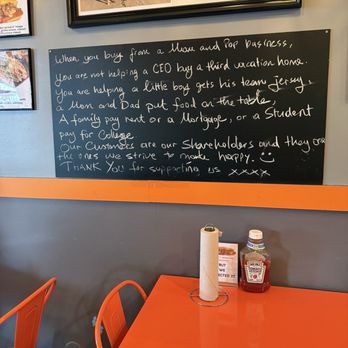 When you buy from a Mom and Pop business,
You are not helping a CEO buy a third vacation home.
You are helping a little boy gets his team jersey,
a Mom and Dad put food on the table,
A family pay rent or a Mortgage, or a Student
pay for College.
Our Customers are our Shareholders and they are
the ones we strive to make happy. :)
THANK YOU for supporting us xxxx
HEINZ